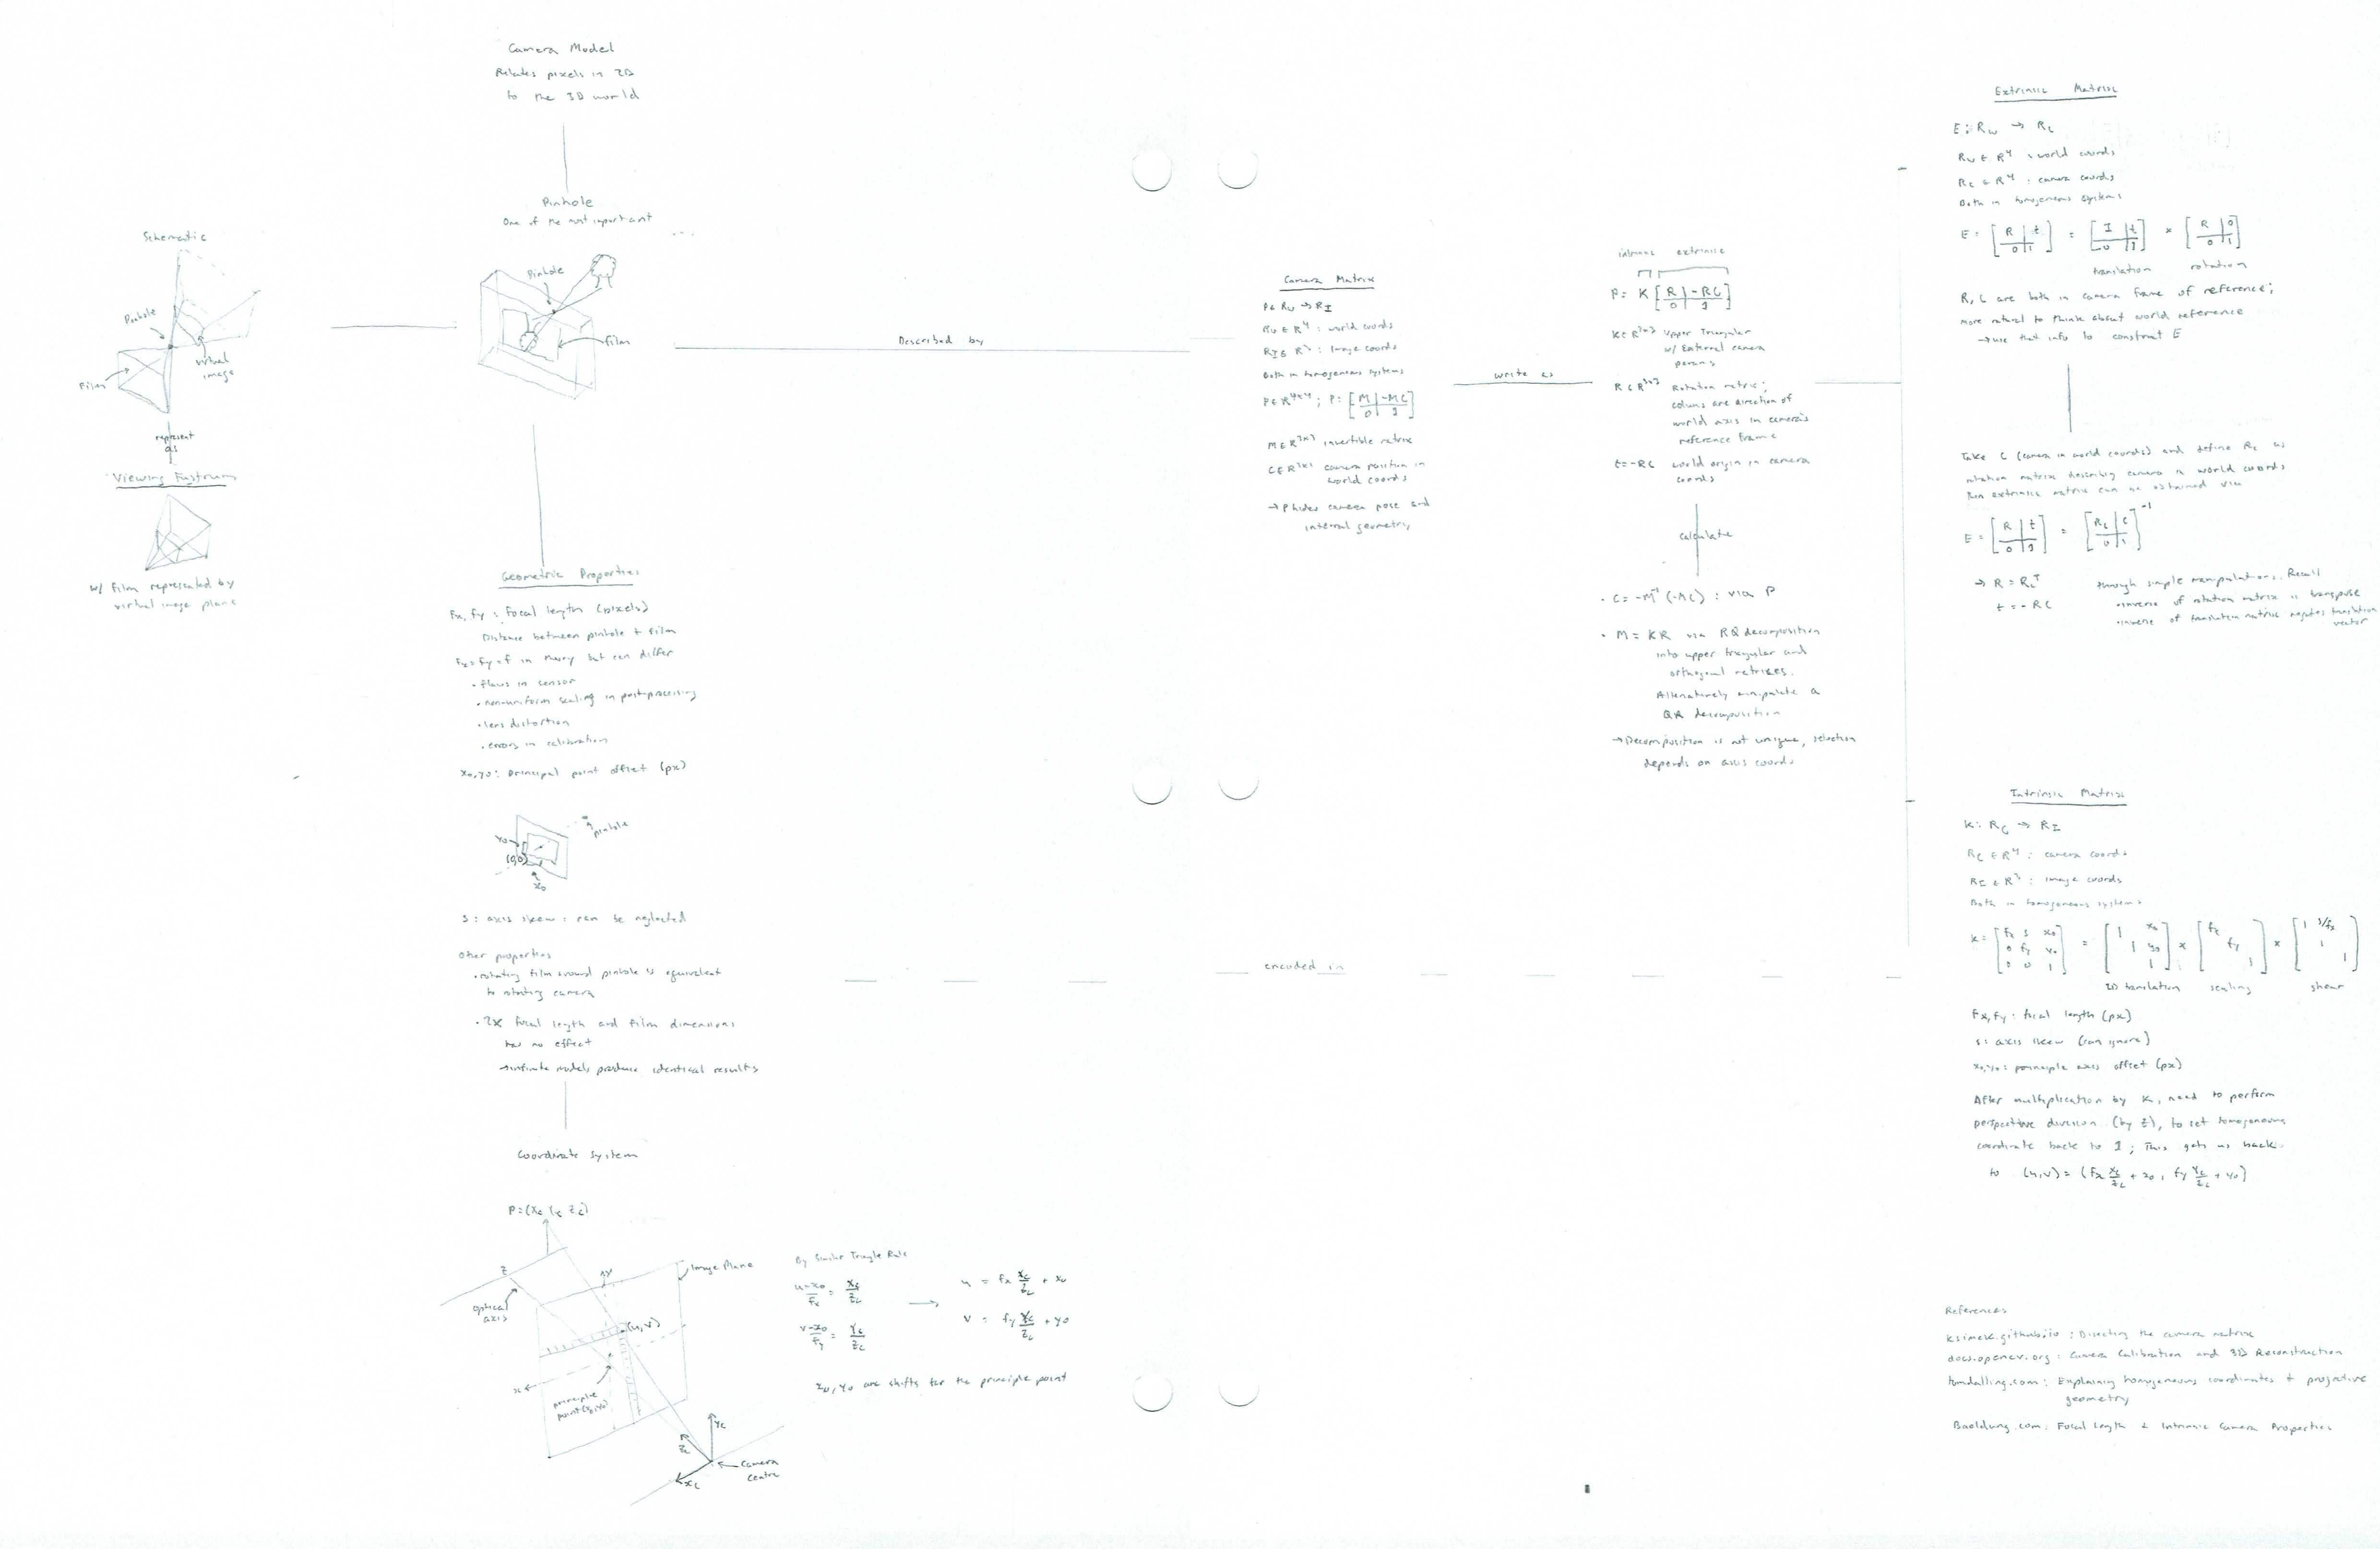 Camera Model
Relates pixels in 2D
to the 3D world
Pinhole
One of the most important
...
Pinhole
film
Schematic
Pinhole
Film
virtual
image
represent
as
Viewing Fustrum
w/ film represented by
virtual image plane
Described by
Geometric Properties
fx, fy : focal length (pixels)
Distance between pinhole + film
fx = fy = f in theory but can differ
• flaws in sensor
• non-uniform scaling in post-processing
• lens distortion
• errors in calibration
x0, y0 : principal point offset (px)
pinhole
y0
(0,0)
x0
s : axis skew : can be neglected
Other properties
• rotating film around pinhole is equivalent
to rotating camera
• 2x focal length and film dimensions
has no effect
→ infinite models produce identical results
Coordinate System
P = (Xc Yc Zc)
Z
optical
axis
y
Image Plane
(u,v)
x
principle
point (x0,y0)
Yc
Zc
Xc
Camera
Centre
By Similar Triangle Rule
u-x0/fx = Xc/Zc → u = fx Xc/Zc + x0
v-x0/fy = Yc/Zc v = fy Yc/Zc + y0
x0, y0 are shifts for the principle point
Camera Matrix
P ∈ Rw → RI
Rw ∈ R^4 : world coords
RI ∈ R^3 : Image coords
Both in homogeneous systems
P ∈ R^4x4 ; P : [M | -MC; 0 | 1]
M ∈ R^3x3 invertible matrix
C ∈ R^3x1 camera position in
world coords
→ P hides camera pose and
internal geometry
write as
intrinsic extrinsic
P = K [R | -RC; 0 | 1]
K ∈ R^3x3 Upper Triangular
w/ External camera
params
R ∈ R^3x3 Rotation matrix;
colums are direction of
world axis in camera's
reference frame
t = -RC world origin in camera
coords
calculate
• C = -M^-1 (-MC) : via P
• M = KR via RQ decomposition
into upper triangular and
orthogonal matrixes.
Alternatively manipulate a
QR decomposition
→ Decomposition is not unique, selection
depends on axis coords
encoded in
Extrinsic Matrix
E : Rw → Rc
Rw ∈ R^4 : world coords
Rc ∈ R^4 : camera coords
Both in homogeneous systems
E = [R | t; 0 | 1] = [I | t; 0 | 1] × [R | 0; 0 | 1]
translation rotation
R, C are both in camera frame of reference;
more natural to think about world reference
→ use that info to construct E
Take C (camera in world coords) and define Rc as
rotation matrix describing camera in world coords
then extrinsic matrix can be obtained via
E = [R | t; 0 | 1] = [Rc | C; 0 | 1]^-1
→ R = Rc^T
t = -RC
through simple manipulations. Recall
• inverse of rotation matrix is transpose
• inverse of translation matrix negates translation
vector
Intrinsic Matrix
K : Rc → RI
Rc ∈ R^4 : camera coords
RI ∈ R^3 : image coords
Both in homogeneous systems
K = [fx s x0; 0 fy y0; 0 0 1] = [1 x0; 1 y0; 1] × [fx; fy; 1] × [1 s/fx; 1; 1]
2D translation scaling shear
fx, fy : focal length (px)
s : axis skew (can ignore)
x0, y0 : principle axis offset (px)
After multiplication by K, need to perform
perspective division (by z), to set homogeneous
coordinate back to 1; This gets us back
to (u,v) = (fx Xc/Zc + x0, fy Yc/Zc + y0)
References
ksimek.github.io : Disecting the camera matrix
docs.opencv.org : Camera Calibration and 3D Reconstruction
tomdalling.com : Explaining homogeneous coordinates + projective
geometry
Baeldung.com : Focal Length & Intrinsic Camera Properties